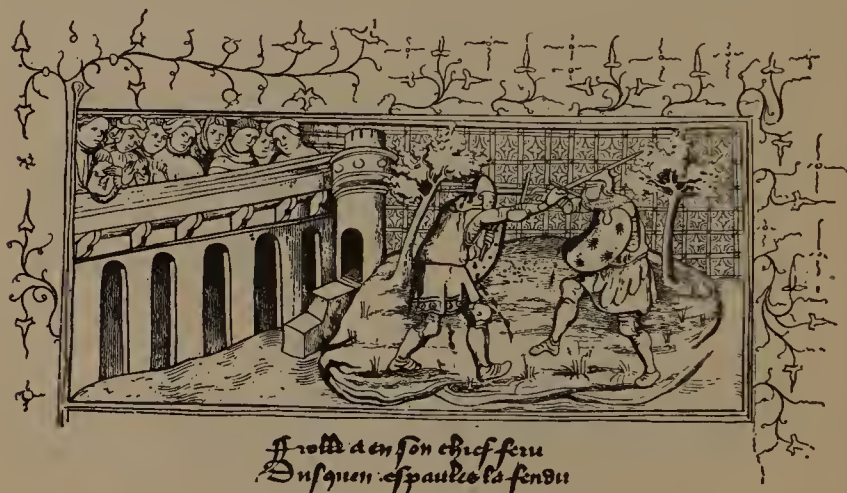 Frolle a en son chief feru
Dusquen espaules la fendu